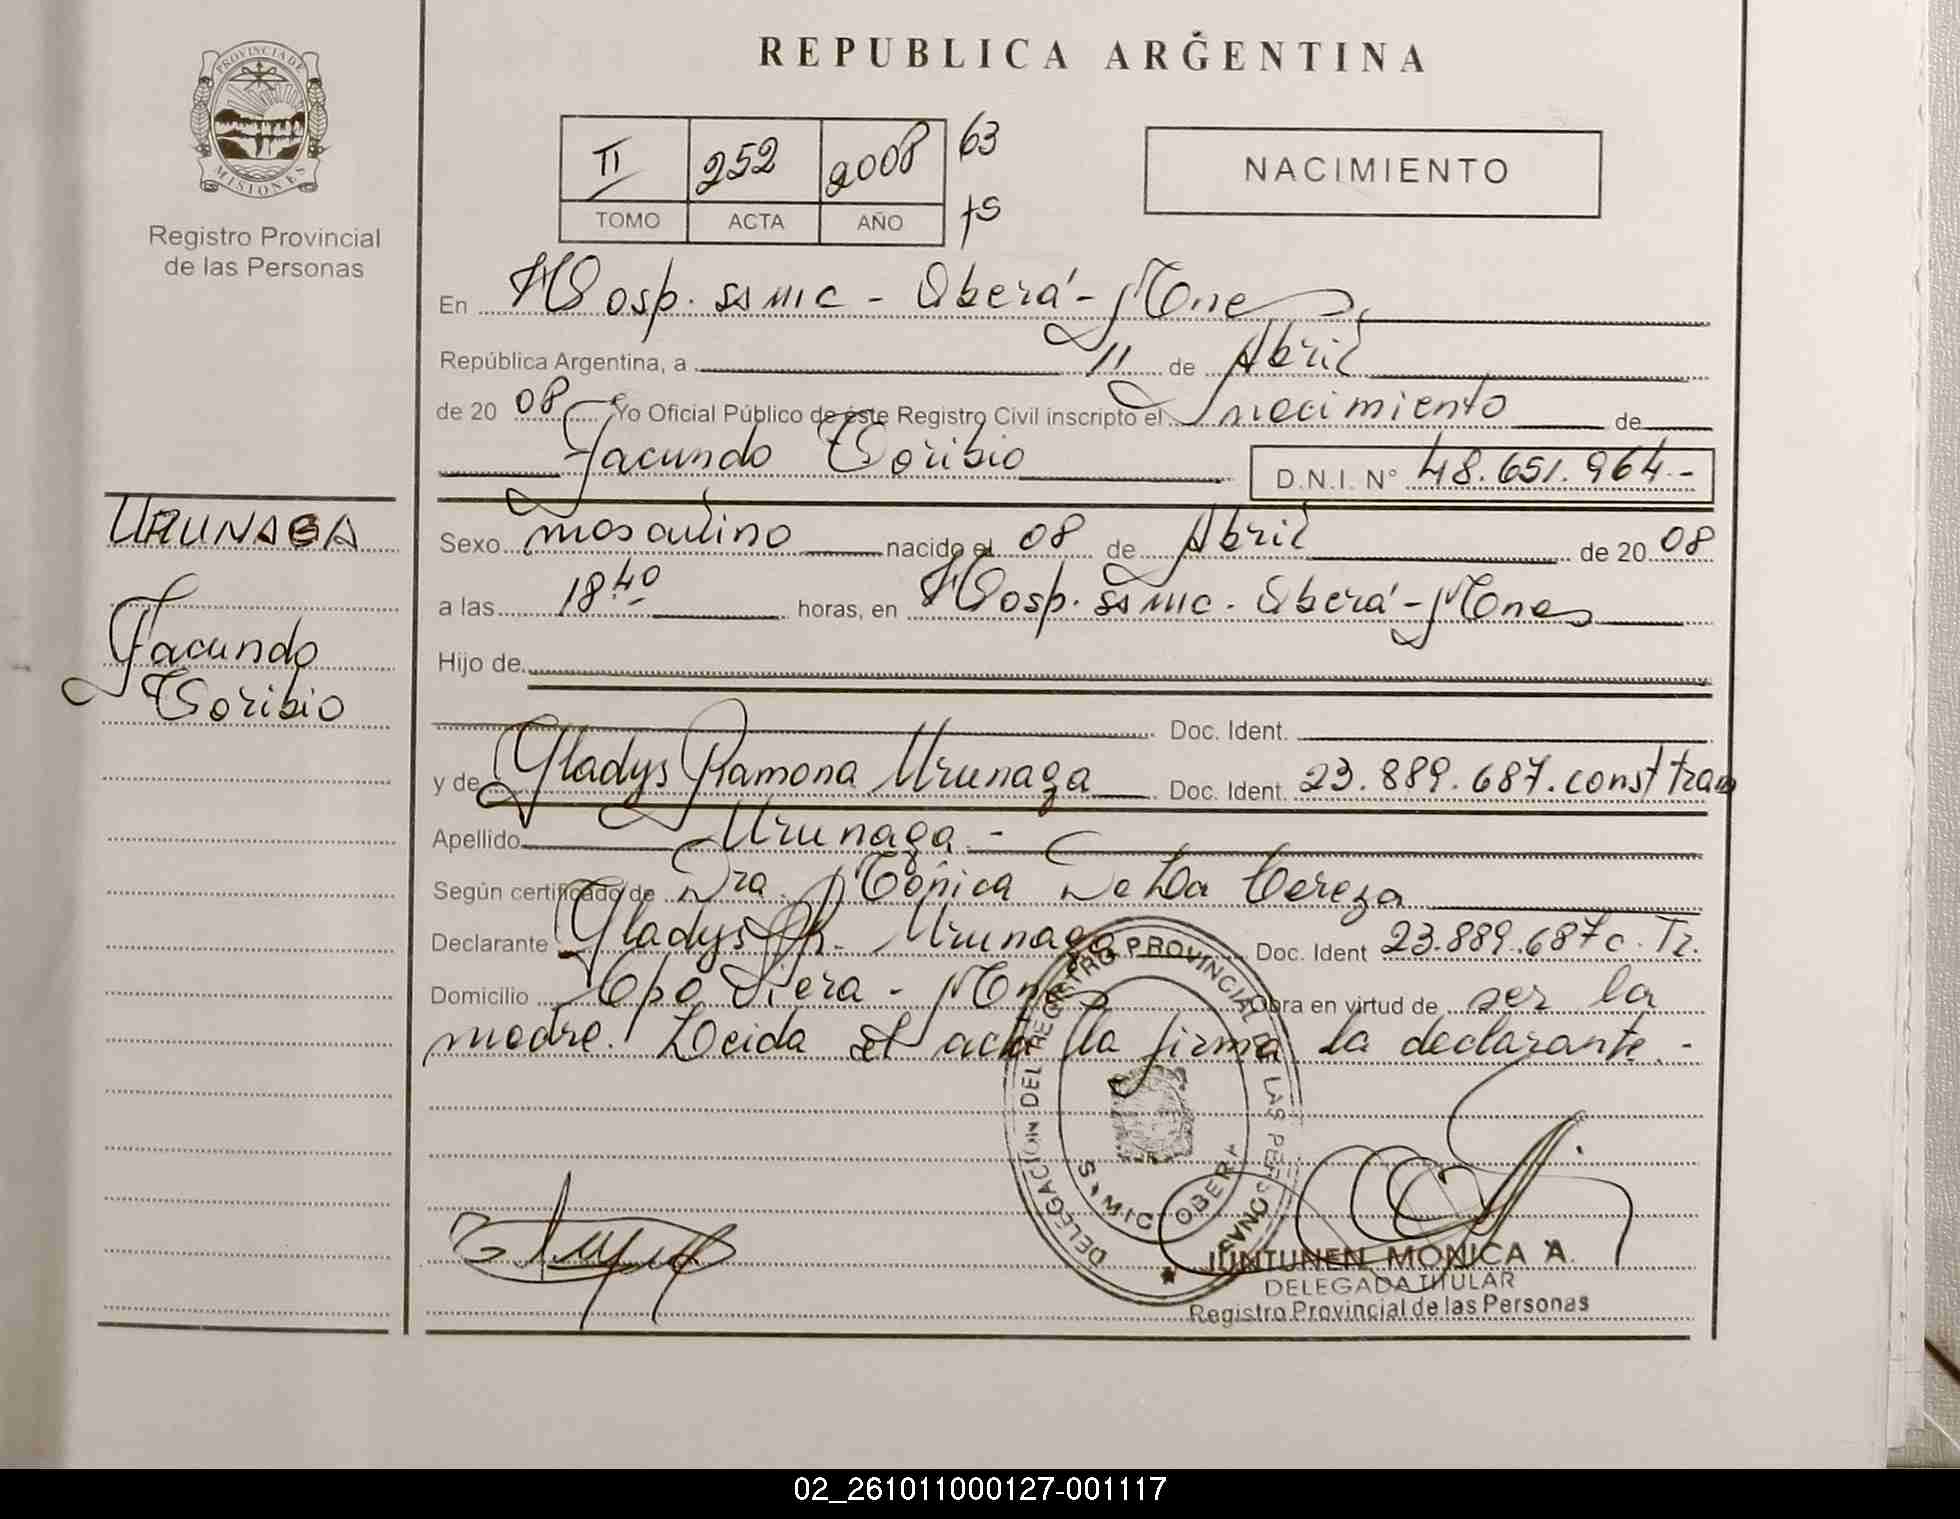 REPUBLICA ARGENTINA
PROVINCIA DE MISIONES
Registro Provincial
de las Personas
II 252 2008 63
TOMO ACTA AÑO fs
NACIMIENTO
En Hosp. SAMIC - Oberá - Mnes
República Argentina, a 11 de Abril
de 2008 Yo Oficial Público de éste Registro Civil inscripto el nacimiento de
Facundo Toribio D.N.I. N° 48.651.964.-
URUNAGA
Facundo
Toribio
Sexo masculino nacido el 08 de Abril de 2008
a las 18 40 horas, en Hosp. SAMIC. Oberá - Mnes
Hijo de
Doc. Ident.
y de Gladys Ramona Urunaga Doc. Ident. 23.889.687. const tram
Apellido Urunaga -
Según certificado de Dra. Mónica De La Cereza
Declarante Gladys R. Urunaga Doc. Ident 23.889.687 c. Tr.
Domicilio Cpo Viera - Mnes Obra en virtud de ser la
madre. Leida el acta la firma la declarante.-
DELEGACION DEL REGISTRO PROVINCIAL DE LAS PERSONAS
SAMIC OBERA
JUNTUNEN MONICA A.
DELEGADA TITULAR
Registro Provincial de las Personas
02_261011000127-001117